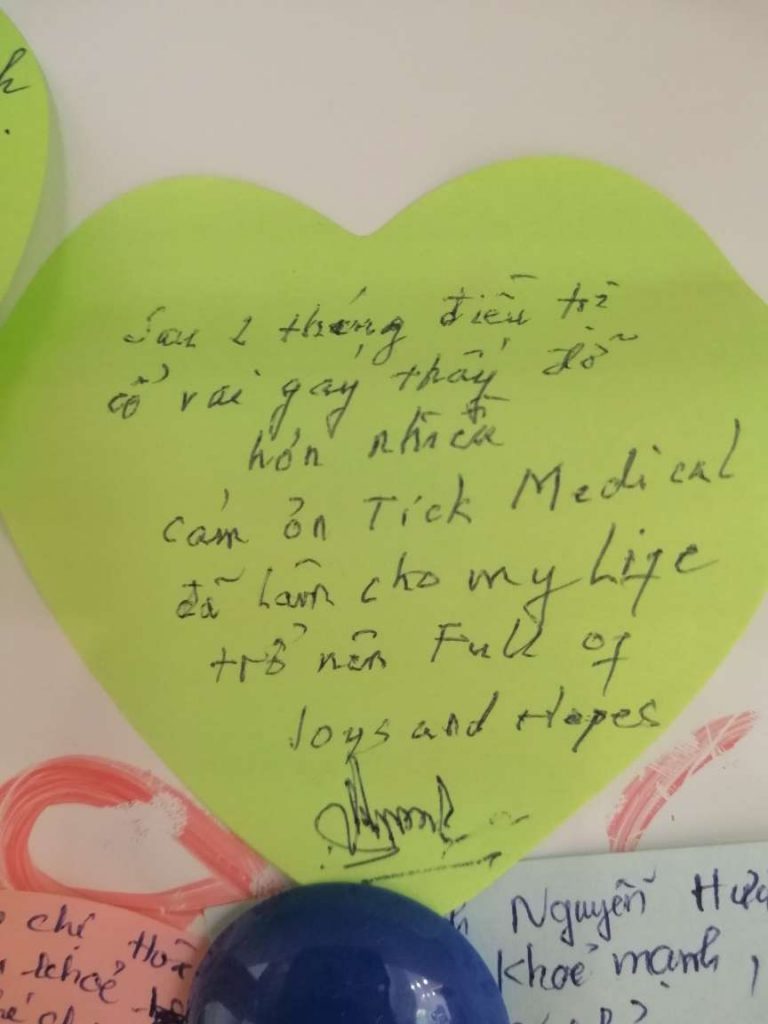 h
.
Sau 2 tháng điều trị
cổ vai gáy thấy đỡ
hơn nhiều
cảm ơn Tick Medical
đã làm cho my Life
trở nên Full of
Joys and Hopes
chị
khoẻ
Nguyễn
khoẻ mạnh,